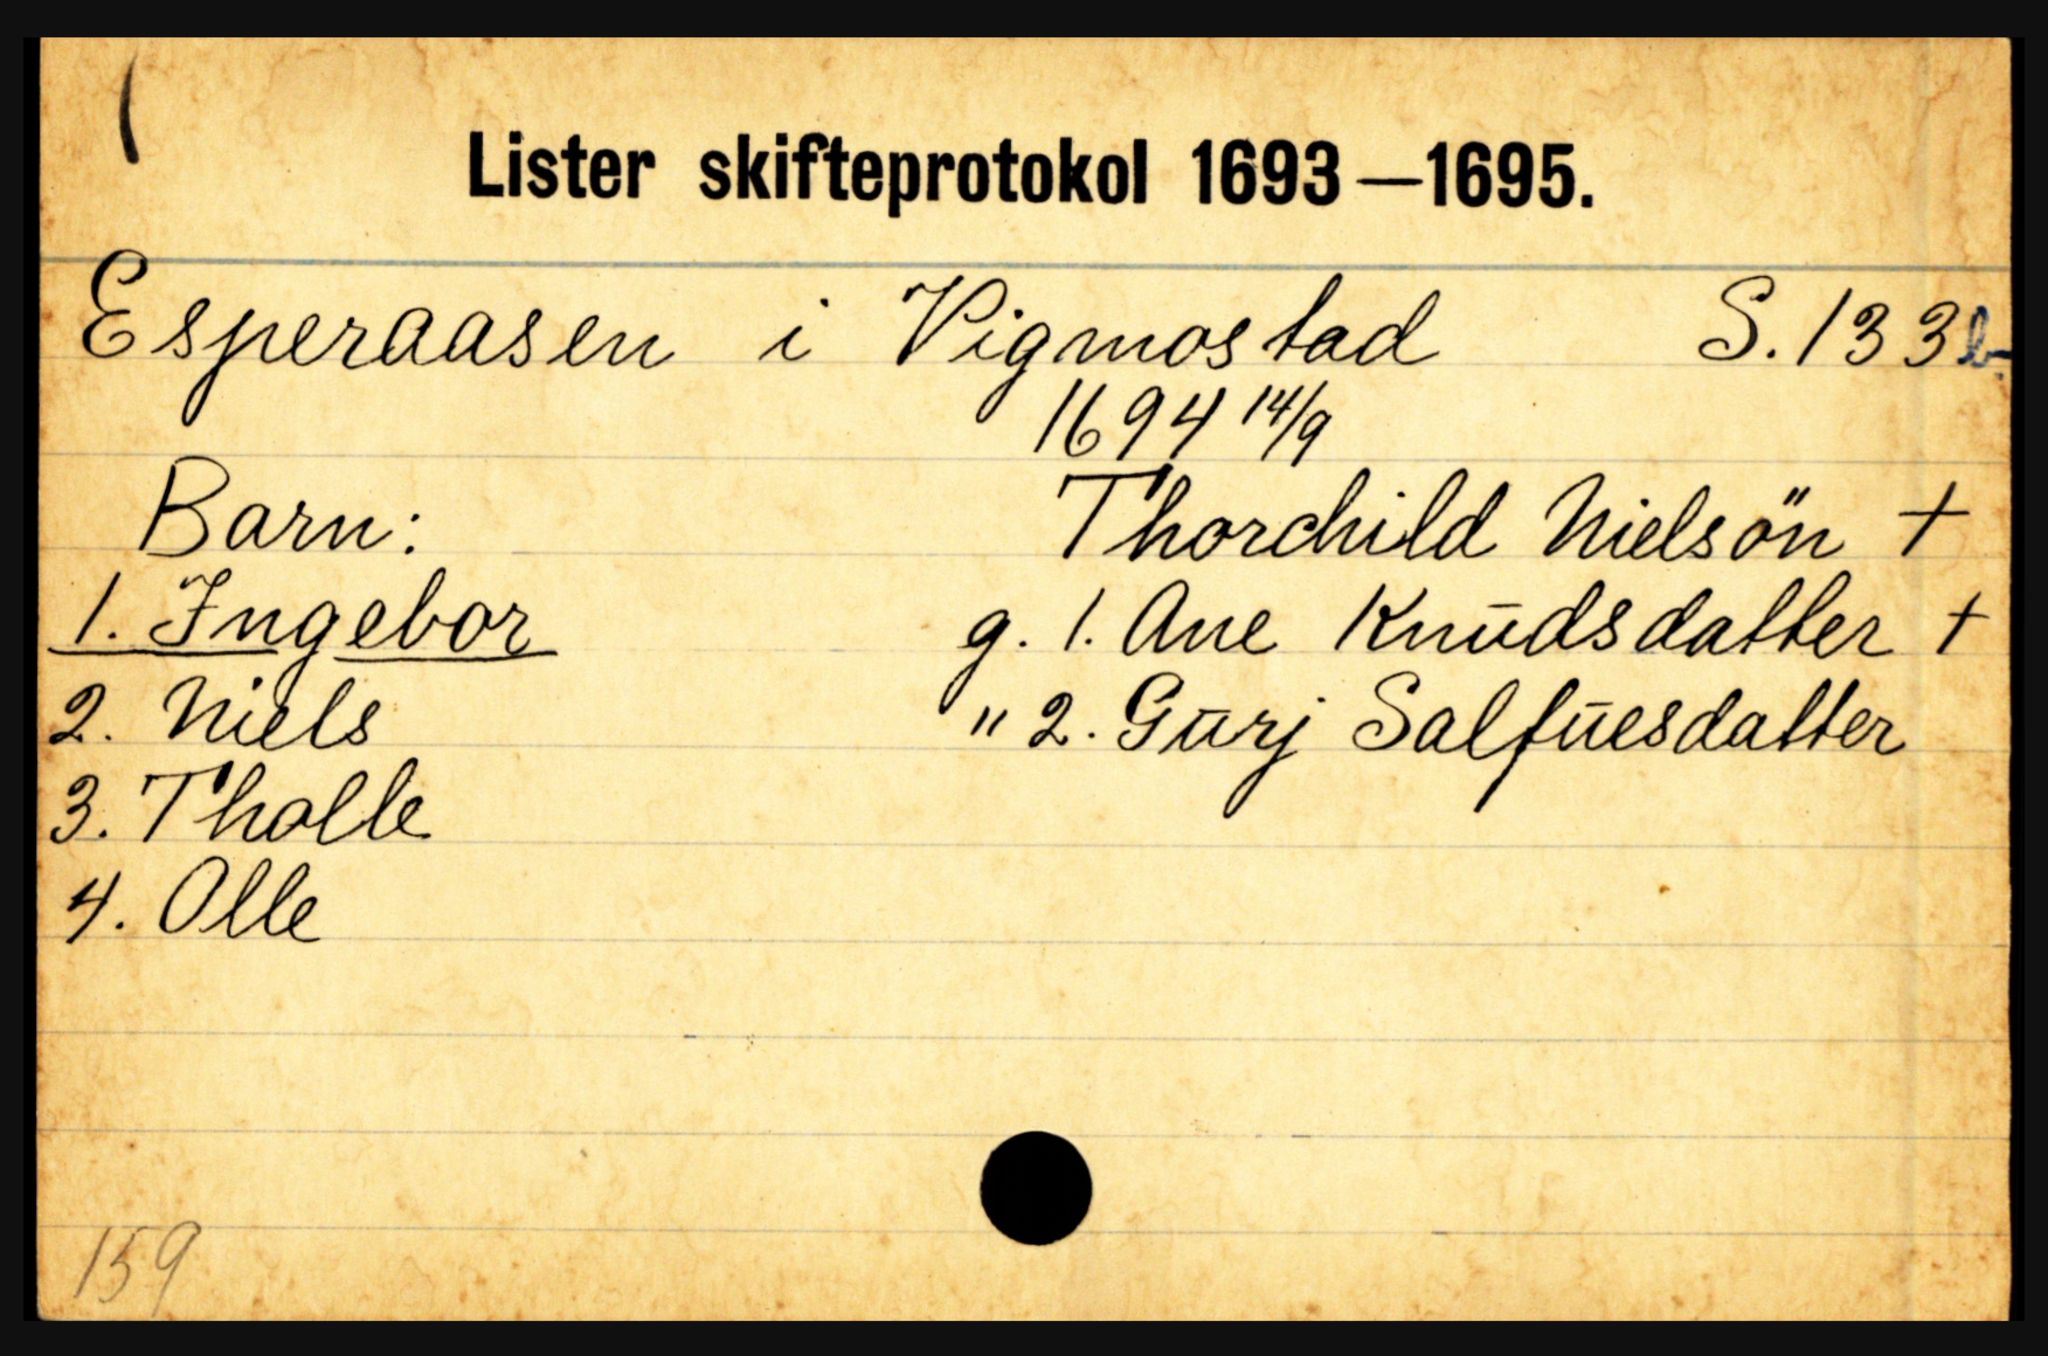 Lister skifteprotokol 1693—1695.
Esperaasen i Vigmostad S. 133b.
1694 14/9
Barn: Thorchild Nielsön +
1. Ingebor g. 1. Ane Knūdsdatter +
2. Niels " 2. Gūrj Salfūesdatter
3. Tholle
4. Olle
159